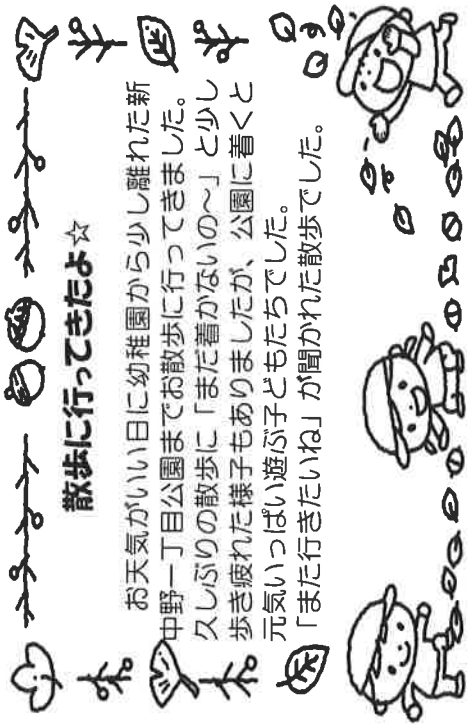 散歩に行ってきたよ☆
お天気がいい日に幼稚園から少し離れた新
中野一丁目公園までお散歩に行ってきました。
久しぶりの散歩に「まだ着かないの～」と少し
歩き疲れた様子もありましたが、公園に着くと
元気いっぱい遊ぶ子どもたちでした。
「また行きたいね」が聞かれた散歩でした。